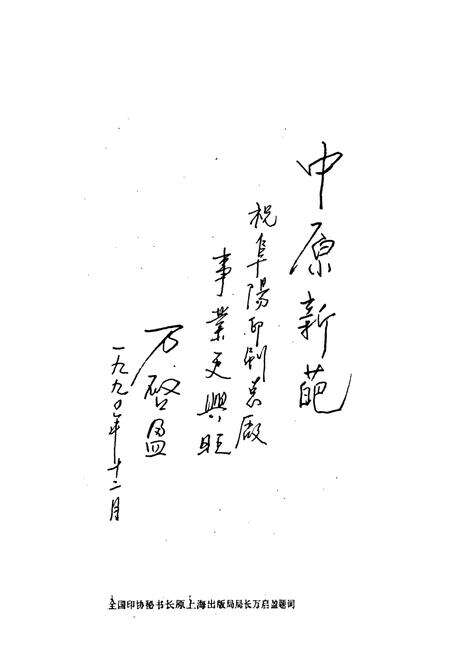 中原新葩
祝阜陽印刷总廠
事業更興旺
万啓盈
一九九〇年十二月
全国印协秘书长原上海出版局局长万启盈题词